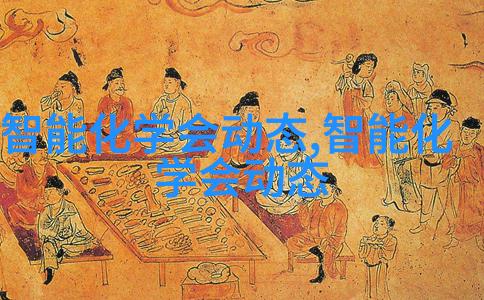 智能化学会动态,智能化
学会动态